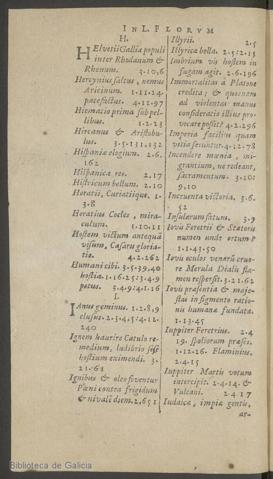 IN L. FLORVM
H.
HElvetii Gallia populi
inter Rhodanum &
Rhenum. 3.10,6
Hercynius saltus, nemus
Aricinum. 1.11.24.
pacefactus. 4.12.97
Hiematio prima sub pel-
libus. 1.2.23
Hircanus & Aristobu-
lus. 3.5.131,132
Hispania ologium. 2.6.
162
Hispanica res. 2.17
Histricum bellum. 2.10
Horatii, Curiatiique. 1.
3.8
Horatius Cocles, mira-
culum. 1.10.11
Hostem victum antequā
visum, Cæsaris gloria-
tio. 4.2.262
Humani cibi. 3.5.39,40
hostia. 1.16.25:3.4.9
potus. 3.4.9:4.1.16
I.
IAnus geminus. 1.2.8,9
clusus. 2.3.4,5:4.12.
240
Ignem haurire Catulo re-
medium, ludibrio sese
hostium eximendi. 3.
21.61
Ignibus & oleo foventur
Pœni contra frigidum
& nivalē diem. 2.6.51
Illyrii. 2.5
Illyrica bella. 2.5:2.13
Imbrium vis hostem in
fugam agit. 2.6.196
Immortalitas à Platone
credita; & quosnam
ad violentas manus
consideratio illius pro-
vocare possit? 4.2.296
Imperia facilius quàm
vetita feruntur. 4.12.78
Incendere munia, mi-
grantium, ne redeant,
sacramentum. 3.10:
9,10
Incruenta victoria. 3.6.
52
Insularum fatum. 3.9
Iovis Feretrii & Statoris
numen unde ortum?
1.1.43.50
Iovis oculos venerū cruo-
re Merula Dialis fla-
men respersit. 3.21.62
Iovis præsentia & maje-
stas in figmento ratio-
nis humanæ fundata.
1.13.45
Iuppiter Feretrius. 2.4
19. spoliorum præses.
1.12.26. Flaminius.
2.4.15
Iuppiter Marti votum
intercipit. 2.4.14. &
Vulcani. 2.4.17
Iudaica, impia gentis,
ar-
Biblioteca de Galicia